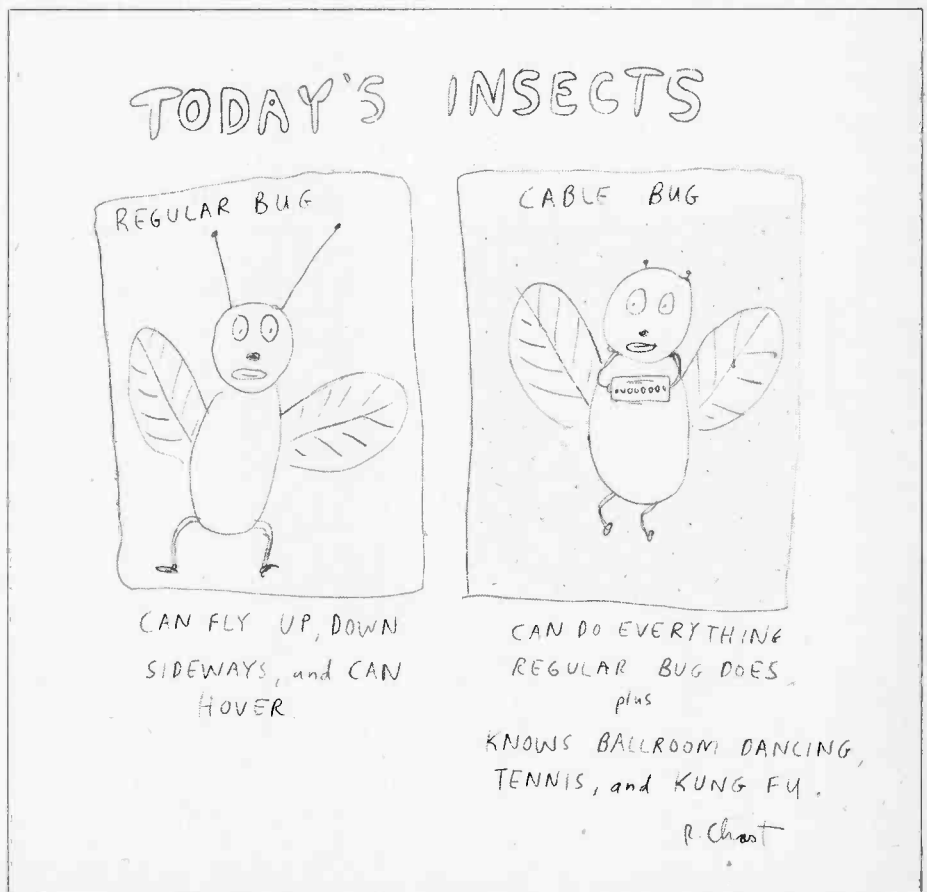 TODAY'S INSECTS
REGULAR BUG
CAN FLY UP, DOWN
SIDEWAYS, and CAN
HOVER
CABLE BUG
CAN DO EVERYTHING
REGULAR BUG DOES
plus
KNOWS BALLROOM DANCING,
TENNIS, and KUNG FU.
R. Chast